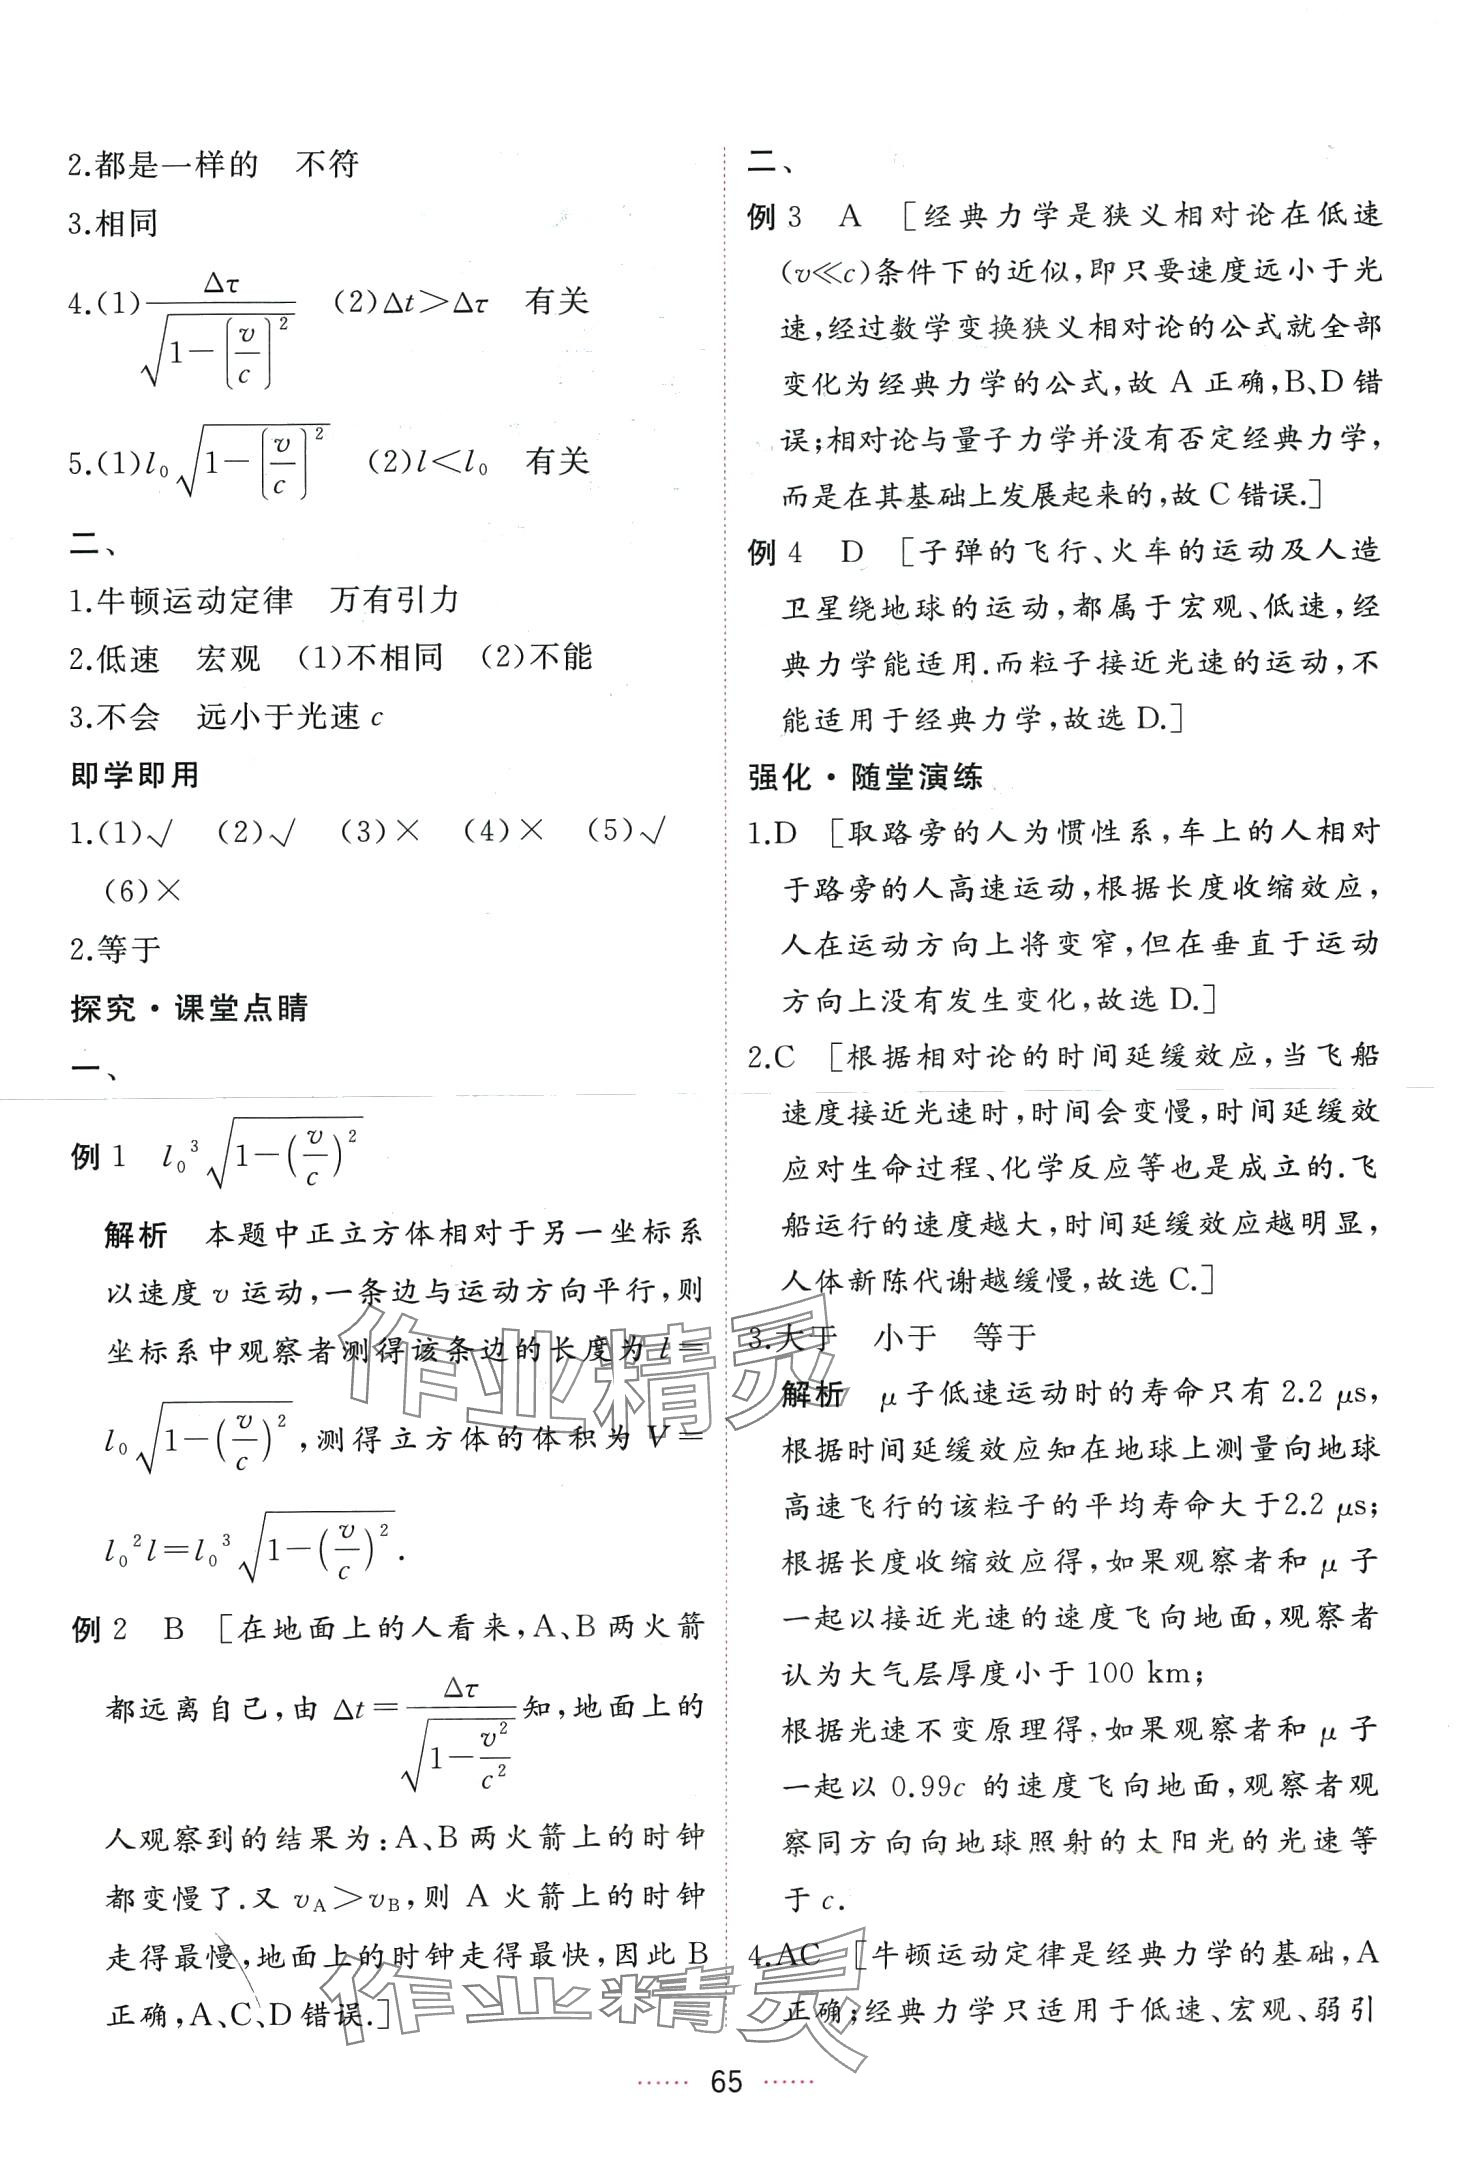 2.都是一样的　不符
3.相同
4.(1)Δτ/√(1−(v/c)²)　(2)Δt＞Δτ　有关
5.(1)l₀√(1−(v/c)²)　(2)l＜l₀　有关
二、
1.牛顿运动定律　万有引力
2.低速　宏观　(1)不相同　(2)不能
3.不会　远小于光速 c
即学即用
1.(1)√　(2)√　(3)×　(4)×　(5)√
(6)×
2.等于
探究·课堂点睛
一、
例 1　l₀³√(1−(v/c)²)
解析　本题中正立方体相对于另一坐标系
以速度 v 运动,一条边与运动方向平行,则
坐标系中观察者测得该条边的长度为 l＝
l₀√(1−(v/c)²),测得立方体的体积为 V＝
l₀²l＝l₀³√(1−(v/c)²).
例 2　B　[在地面上的人看来,A、B 两火箭
都远离自己,由 Δt＝Δτ/√(1−v²/c²)知,地面上的
人观察到的结果为:A、B 两火箭上的时钟
都变慢了.又 vA＞vB,则 A 火箭上的时钟
走得最慢,地面上的时钟走得最快,因此 B
正确,A、C、D 错误.]
二、
例 3　A　[经典力学是狭义相对论在低速
(v≪c)条件下的近似,即只要速度远小于光
速,经过数学变换狭义相对论的公式就全部
变化为经典力学的公式,故 A 正确,B、D 错
误;相对论与量子力学并没有否定经典力学,
而是在其基础上发展起来的,故 C 错误.]
例 4　D　[子弹的飞行、火车的运动及人造
卫星绕地球的运动,都属于宏观、低速,经
典力学能适用.而粒子接近光速的运动,不
能适用于经典力学,故选 D.]
强化·随堂演练
1.D　[取路旁的人为惯性系,车上的人相对
于路旁的人高速运动,根据长度收缩效应,
人在运动方向上将变窄,但在垂直于运动
方向上没有发生变化,故选 D.]
2.C　[根据相对论的时间延缓效应,当飞船
速度接近光速时,时间会变慢,时间延缓效
应对生命过程、化学反应等也是成立的.飞
船运行的速度越大,时间延缓效应越明显,
人体新陈代谢越缓慢,故选 C.]
3.大于　小于　等于
解析　μ 子低速运动时的寿命只有 2.2 μs,
根据时间延缓效应知在地球上测量向地球
高速飞行的该粒子的平均寿命大于2.2 μs;
根据长度收缩效应得,如果观察者和 μ 子
一起以接近光速的速度飞向地面,观察者
认为大气层厚度小于 100 km;
根据光速不变原理得,如果观察者和 μ 子
一起以 0.99c 的速度飞向地面,观察者观
察同方向向地球照射的太阳光的光速等
于 c.
4.AC　[牛顿运动定律是经典力学的基础,A
正确;经典力学只适用于低速、宏观、弱引
作业精灵
作业精灵
······ 65 ······